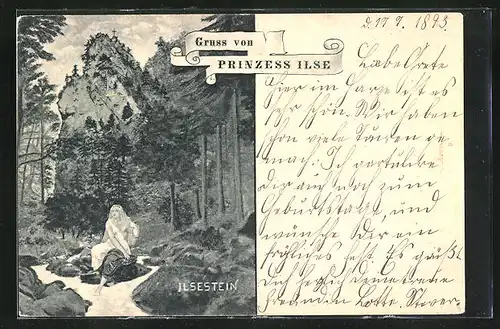 d. 17. 7. 1893.
Gruss von
PRINZESS ILSE
Liebe Grete
Hier im Harze ist es
sehr schön. Wir haben
schon viele Touren ge
macht. Ich gratuliere
Dir auch noch zum
Geburtstage, und
wünsche Dir ein
fröhliches Fest. Es grüßt
Dich herzlich
Freundin Lotte.
ILSESTEIN